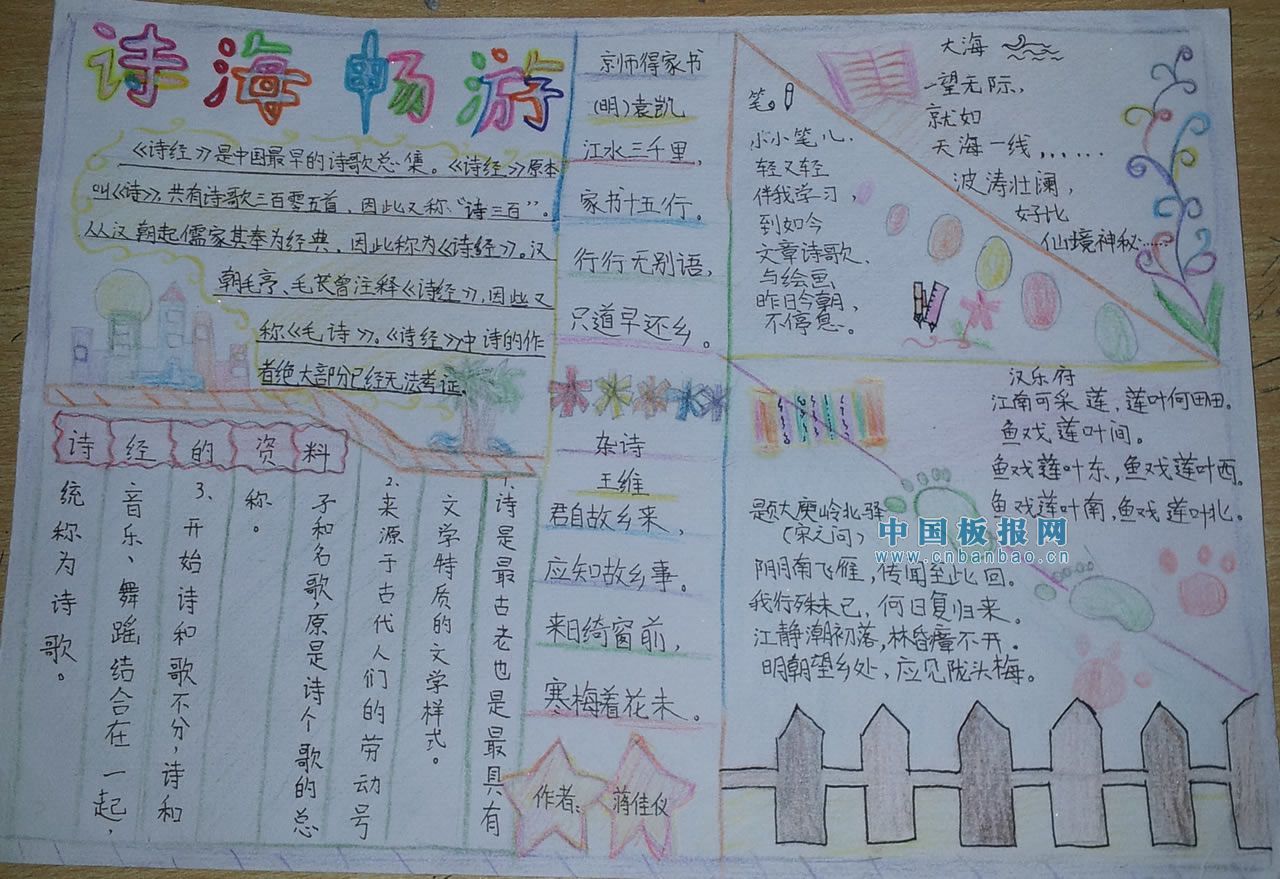 诗海畅游
《诗经》是中国最早的诗歌总集。《诗经》原本
叫《诗》，共有诗歌三百零五首，因此又称“诗三百”。
从汉朝起儒家其奉为经典，因此称为《诗经》。汉
朝毛亨、毛苌曾注释《诗经》，因此又
称《毛诗》。《诗经》中诗的作
者绝大部分已经无法考证。
诗经的资料
1.诗是最古老也是最具有
文学特质的文学样式。
2.来源于古代人们的劳动号
子和名歌，原是诗个歌的总
称。
3、开始诗和歌不分，诗和
音乐、舞蹈结合在一起，
统称为诗歌。
京师得家书
(明)袁凯
江水三千里，
家书十五行。
行行无别语，
只道早还乡。
杂诗
王维
君自故乡来，
应知故乡事。
来日绮窗前，
寒梅着花未。
作者：
蒋佳仪
笔。
小小笔儿.
轻又轻
伴我学习，
到如今
文章诗歌、
与绘画
昨日今朝，
不停息。
大海
一望无际，
就如
天海一线，......
波涛壮澜，
好比
仙境神秘......
汉乐府
江南可采莲，莲叶何田田。
鱼戏莲叶间。
鱼戏莲叶东，鱼戏莲叶西。
鱼戏莲叶南，鱼戏莲叶北。
题大庾岭北驿
(宋之问)
阴月南飞雁，传闻至此回。
我行殊未已，何日复归来。
江静潮初落，林昏瘴不开。
明朝望乡处，应见陇头梅。
中国板报网
www.cnbanbao.cn